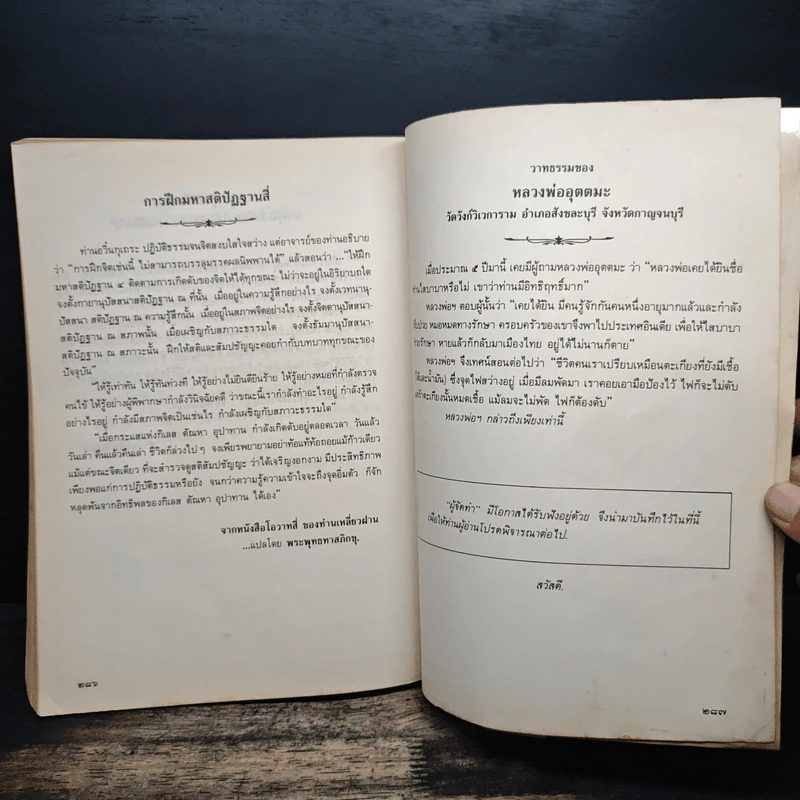 การฝึกมหาสติปัฏฐานสี่
ท่านอวิ๋นกุเถระ ปฏิบัติธรรมจนจิตสงบใสใจสว่าง แต่อาจารย์ของท่านอธิบาย
ว่า "การฝึกจิตเช่นนี้ ไม่สามารถบรรลุมรรคผลนิพพานได้" แล้วสอนว่า ..."ให้ฝึก
มหาสติปัฏฐาน ๔ ติดตามการเกิดดับของจิตให้ได้ทุกขณะ ไม่ว่าจะอยู่ในอิริยาบถใด
จงตั้งกายานุปัสสนาสติปัฏฐาน ณ ที่นั้น เมื่ออยู่ในความรู้สึกอย่างไร จงตั้งเวทนานุ-
ปัสสนา สติปัฏฐาน ณ ความรู้สึกนั้น เมื่ออยู่ในสภาพจิตอย่างไร จงตั้งจิตตานุปัสสนา-
สติปัฏฐาน ณ สภาพนั้น เมื่อเผชิญกับสภาวะธรรมใด จงตั้งธัมมานุปัสสนา-
สติปัฏฐาน ณ สภาวะนั้น ฝึกให้สติและสัมปชัญญะคอยกำกับบทบาททุกขณะของ
ปัจจุบัน"
"ให้รู้เท่าทัน ให้รู้ทันท่วงที ให้รู้อย่างไม่ยินดียินร้าย ให้รู้อย่างหมอที่กำลังตรวจ
คนไข้ ให้รู้อย่างผู้พิพากษากำลังวินิจฉัยคดี ว่าขณะนี้เรากำลังทำอะไรอยู่ กำลังรู้สึก
อย่างไรอยู่ กำลังมีสภาพจิตเป็นเช่นไร กำลังเผชิญกับสภาวะธรรมใด"
"เมื่อกระแสแห่งกิเลส ตัณหา อุปาทาน กำลังเกิดดับอยู่ตลอดเวลา วันแล้ว
วันเล่า คืนแล้วคืนเล่า ชีวิตก็ล่วงไป ๆ จงเพียรพยายามอย่าท้อแท้ท้อถอยแม้ก้าวเดียว
แม้แต่ขณะจิตเดียว ที่จะสำรวจดูสติสัมปชัญญะ ว่าได้เจริญงอกงาม มีประสิทธิภาพ
เพียงพอแก่การปฏิบัติธรรมหรือยัง จนกว่าความรู้ความเข้าใจจะถึงจุดอิ่มตัว ก็จัก
หลุดพ้นจากอิทธิพลของกิเลส ตัณหา อุปาทาน ได้เอง"
จากหนังสือโอวาทสี่ ของท่านเหลี่ยวฝาน
...แปลโดย พระพุทธทาสภิกขุ.
๒๘๖
วาทธรรมของ
หลวงพ่ออุตตมะ
วัดวังก์วิเวการาม อำเภอสังขละบุรี จังหวัดกาญจนบุรี
เมื่อประมาณ ๕ ปีมานี้ เคยมีผู้ถามหลวงพ่ออุตตมะ ว่า "หลวงพ่อเคยได้ยินชื่อ
ท่านไสบาบาหรือไม่ เขาว่าท่านมีอิทธิฤทธิ์มาก"
หลวงพ่อฯ ตอบผู้นั้นว่า "เคยได้ยิน มีคนรู้จักกันคนหนึ่งอายุมากแล้วและกำลัง
เจ็บป่วย หมอหมดทางรักษา ครอบครัวของเขาจึงพาไปประเทศอินเดีย เพื่อให้ไสบาบา
ช่วยรักษา หายแล้วก็กลับมาเมืองไทย อยู่ได้ไม่นานก็ตาย"
หลวงพ่อฯ จึงเทศน์สอนต่อไปว่า "ชีวิตคนเราเปรียบเหมือนตะเกียงที่ยังมีเชื้อ
(ไส้และน้ำมัน) ซึ่งจุดไฟสว่างอยู่ เมื่อมีลมพัดมา เราคอยเอามือป้องไว้ ไฟก็จะไม่ดับ
แต่ถ้าตะเกียงนั้นหมดเชื้อ แม้ลมจะไม่พัด ไฟก็ต้องดับ"
หลวงพ่อฯ กล่าวถึงเพียงเท่านี้
"ผู้จัดทำ" มีโอกาสได้รับฟังอยู่ด้วย จึงนำมาบันทึกไว้ในที่นี้
เพื่อให้ท่านผู้อ่านโปรดพิจารณาต่อไป.
สวัสดี.
๒๘๗